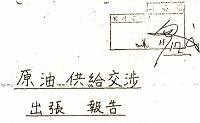 原油 供給交渉
出張 報告